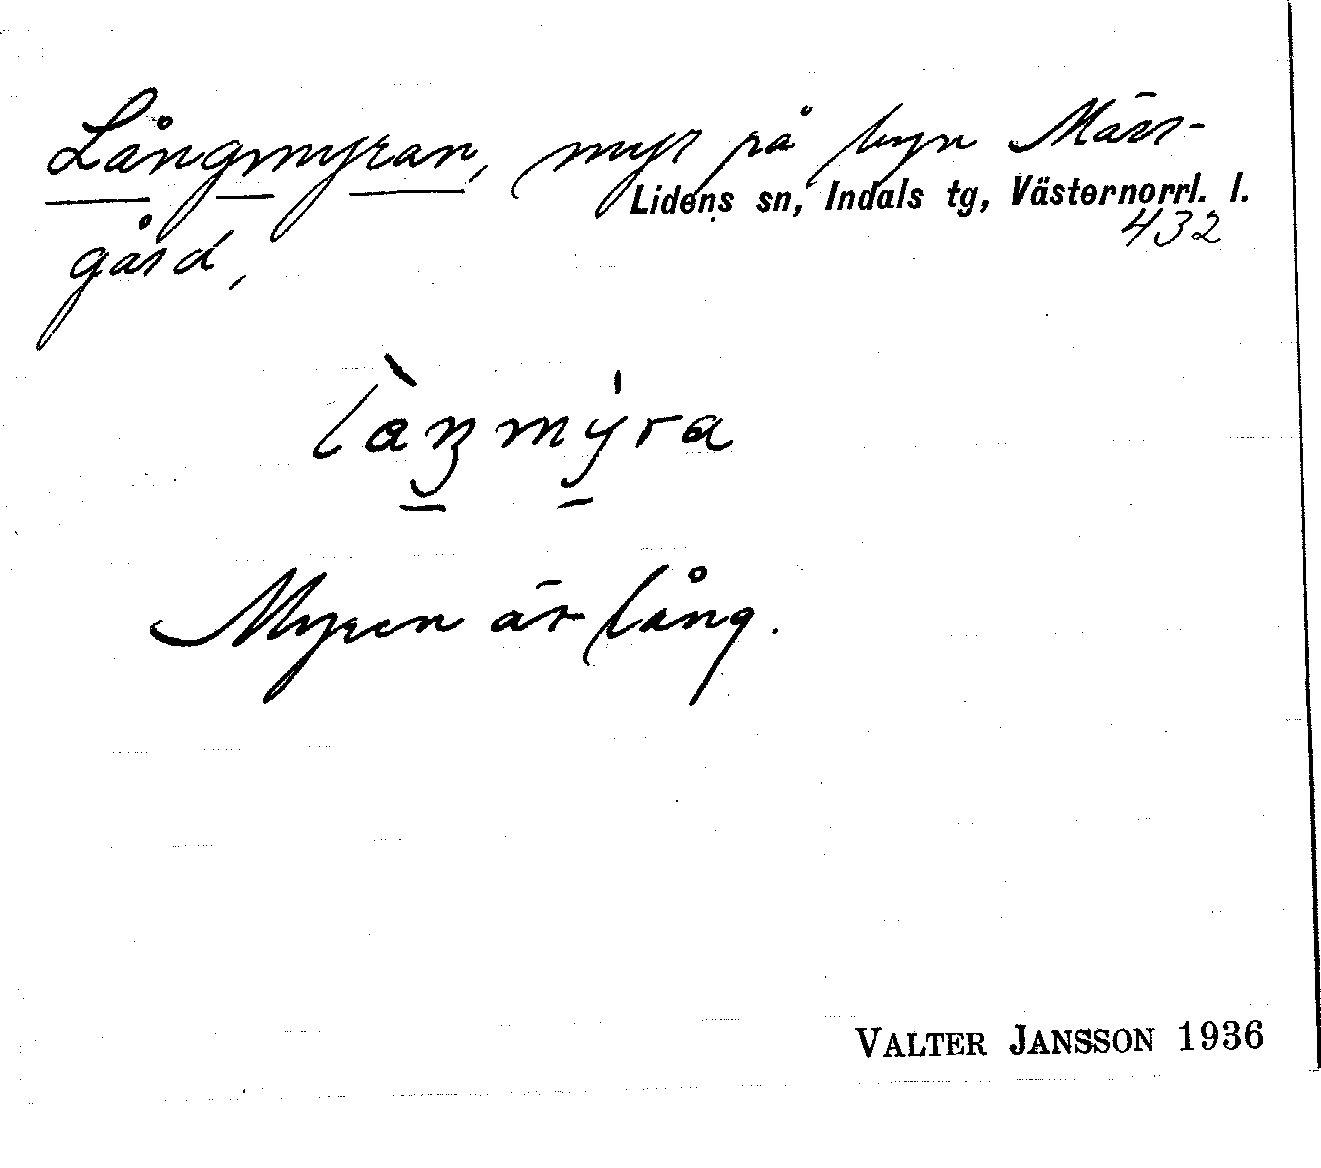 Långmyran, myr på byn Märr-
Lidens sn, Indals tg, Västernorrl. l.
432
gård,
làŋmy̍ra
Myren är lång.
VALTER JANSSON 1936